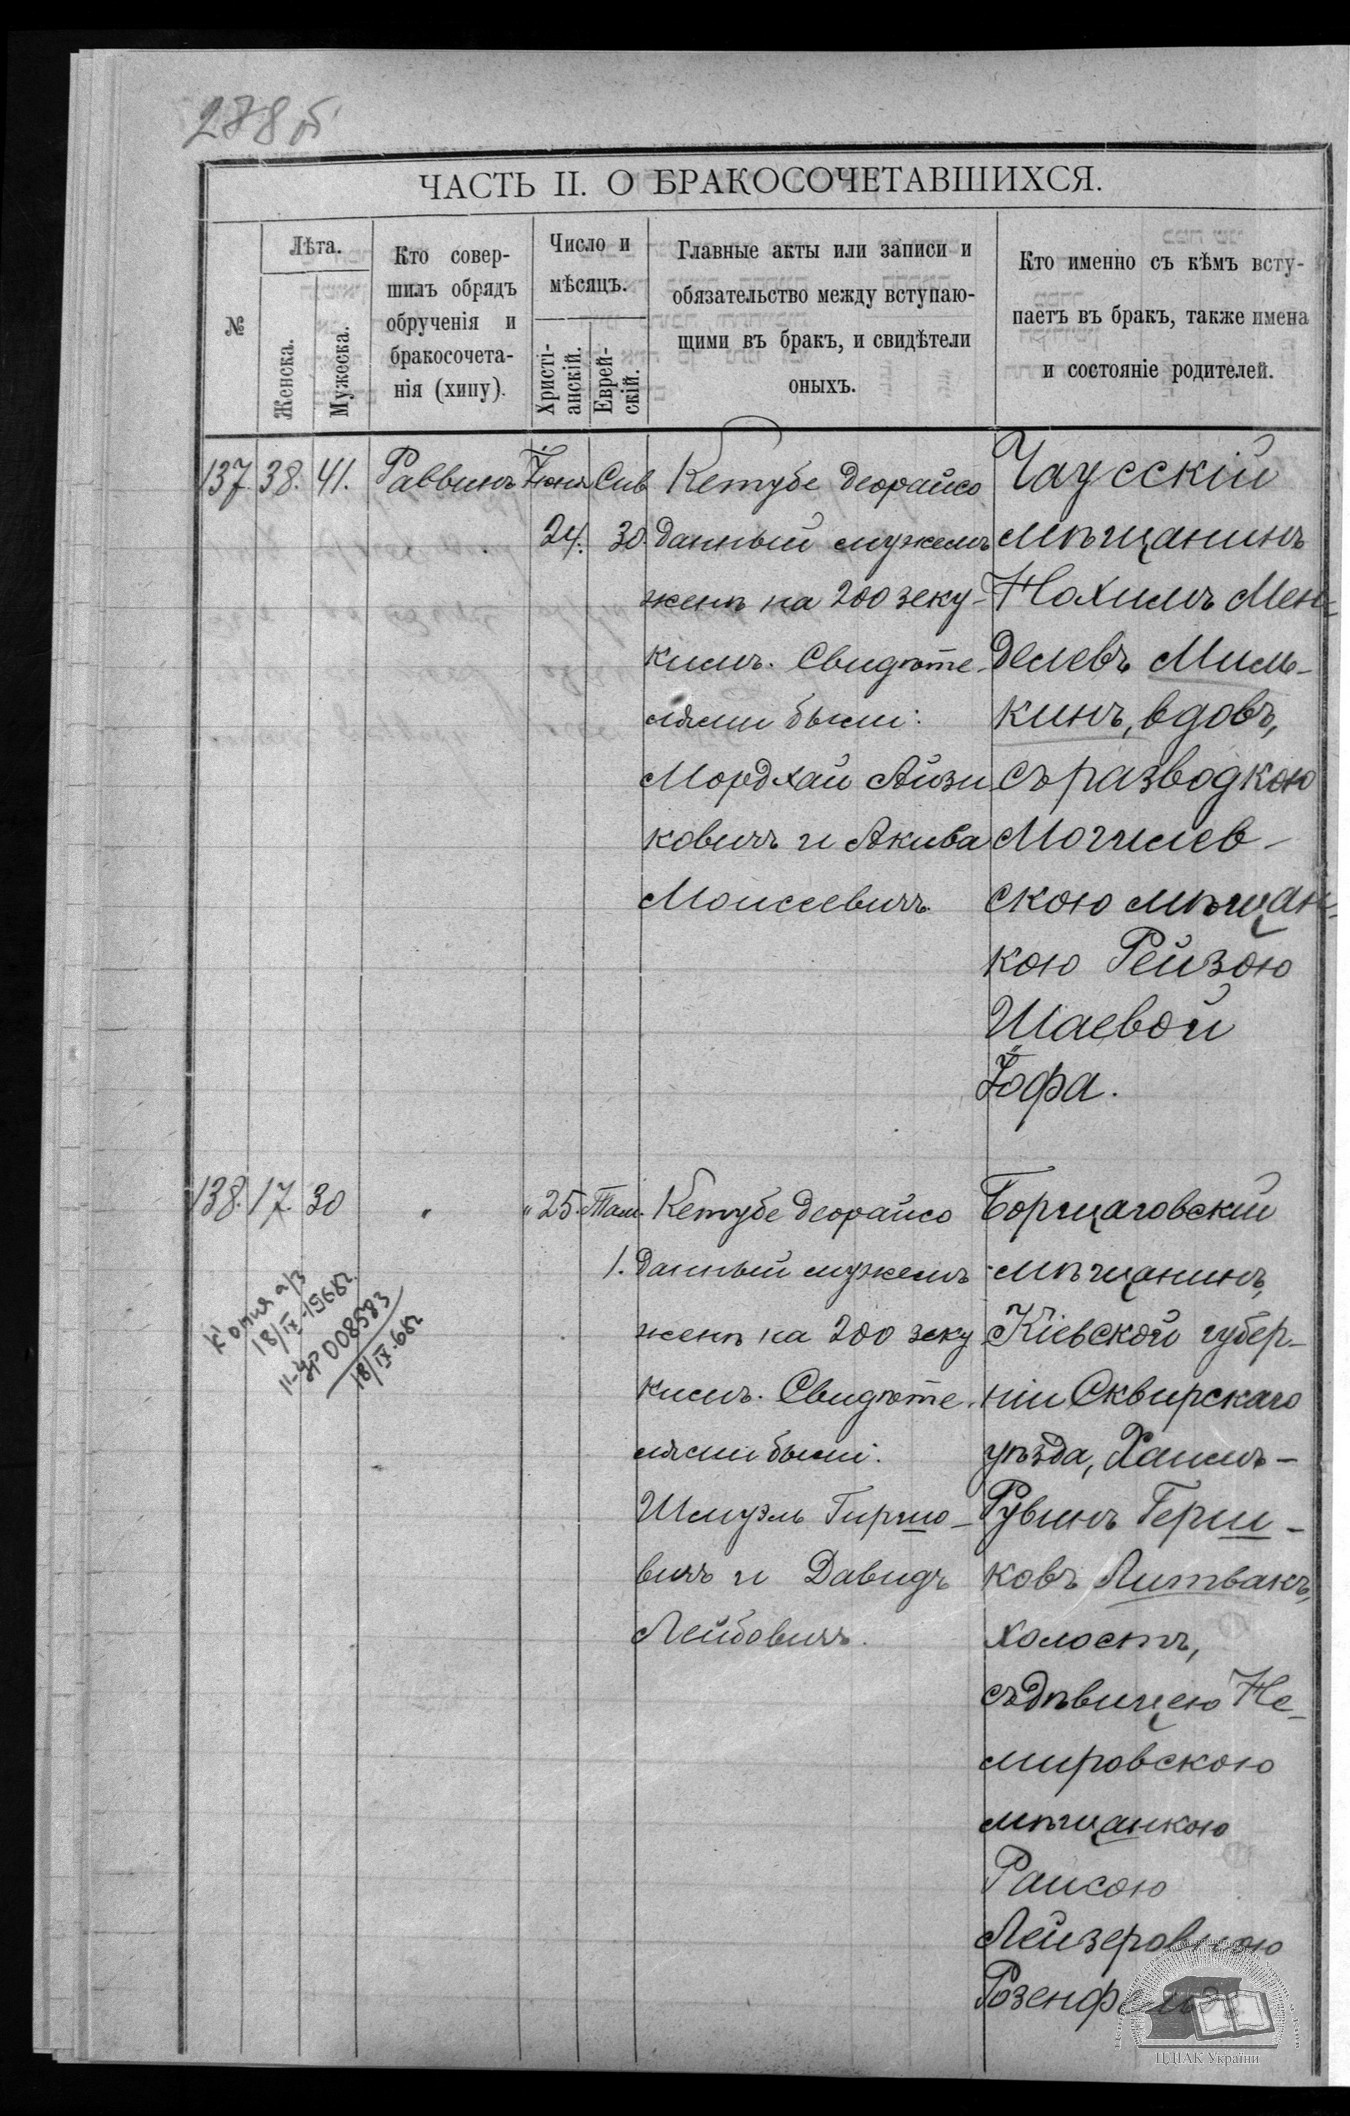 278 б
ЧАСТЬ II. О БРАКОСОЧЕТАВШИХСЯ.
№
Лѣта.
Женска.
Мужеска.
Кто совер-
шилъ обрядъ
обрученія и
бракосочета-
нія (хипу).
Число и
мѣсяцъ.
Христі-
анскій.
Еврей-
скій.
Главные акты или записи и
обязательство между вступаю-
щими въ бракъ, и свидѣтели
оныхъ.
Кто именно съ кѣмъ всту-
паетъ въ бракъ, также имена
и состояніе родителей.
137. 38. 41. Раввинъ Іюня 24. Сив 30.
Кетубе деорайсо
данный мужемъ
женѣ на 200 зеку-
кимъ. Свидѣте-
лями были:
Мордхай Айзи
ковичъ и Акива
Моисеевичъ.
Чаусскій
мѣщанинъ
Нохимъ Мен-
делевъ Миль-
кинъ, вдовъ,
съ разводкою
Могилев-
скою мѣщан-
кою Рейзою
Шаевой
Іофа.
138. 17. 30 " " 25. Там. 1.
Кетубе деорайсо
данный мужемъ
женѣ на 200 зеку
кимъ. Свидѣте-
лями были:
Шмуэль Гиршо-
вичъ и Давидъ
Лейбовичъ.
Борщаговскій
мѣщанинъ,
Кіевской губер-
ніи Сквирскаго
уѣзда, Хаимъ-
Рувинъ Герш-
ковъ Литвакъ,
холостъ,
съ дѣвицею Не-
мировскою
мѣщанкою
Раисою
Лейзеровною
Розенфельдъ
Копия а/з
18/IX-1968г.
II-УР 008583
18/IX-68г
ЦДІАК України